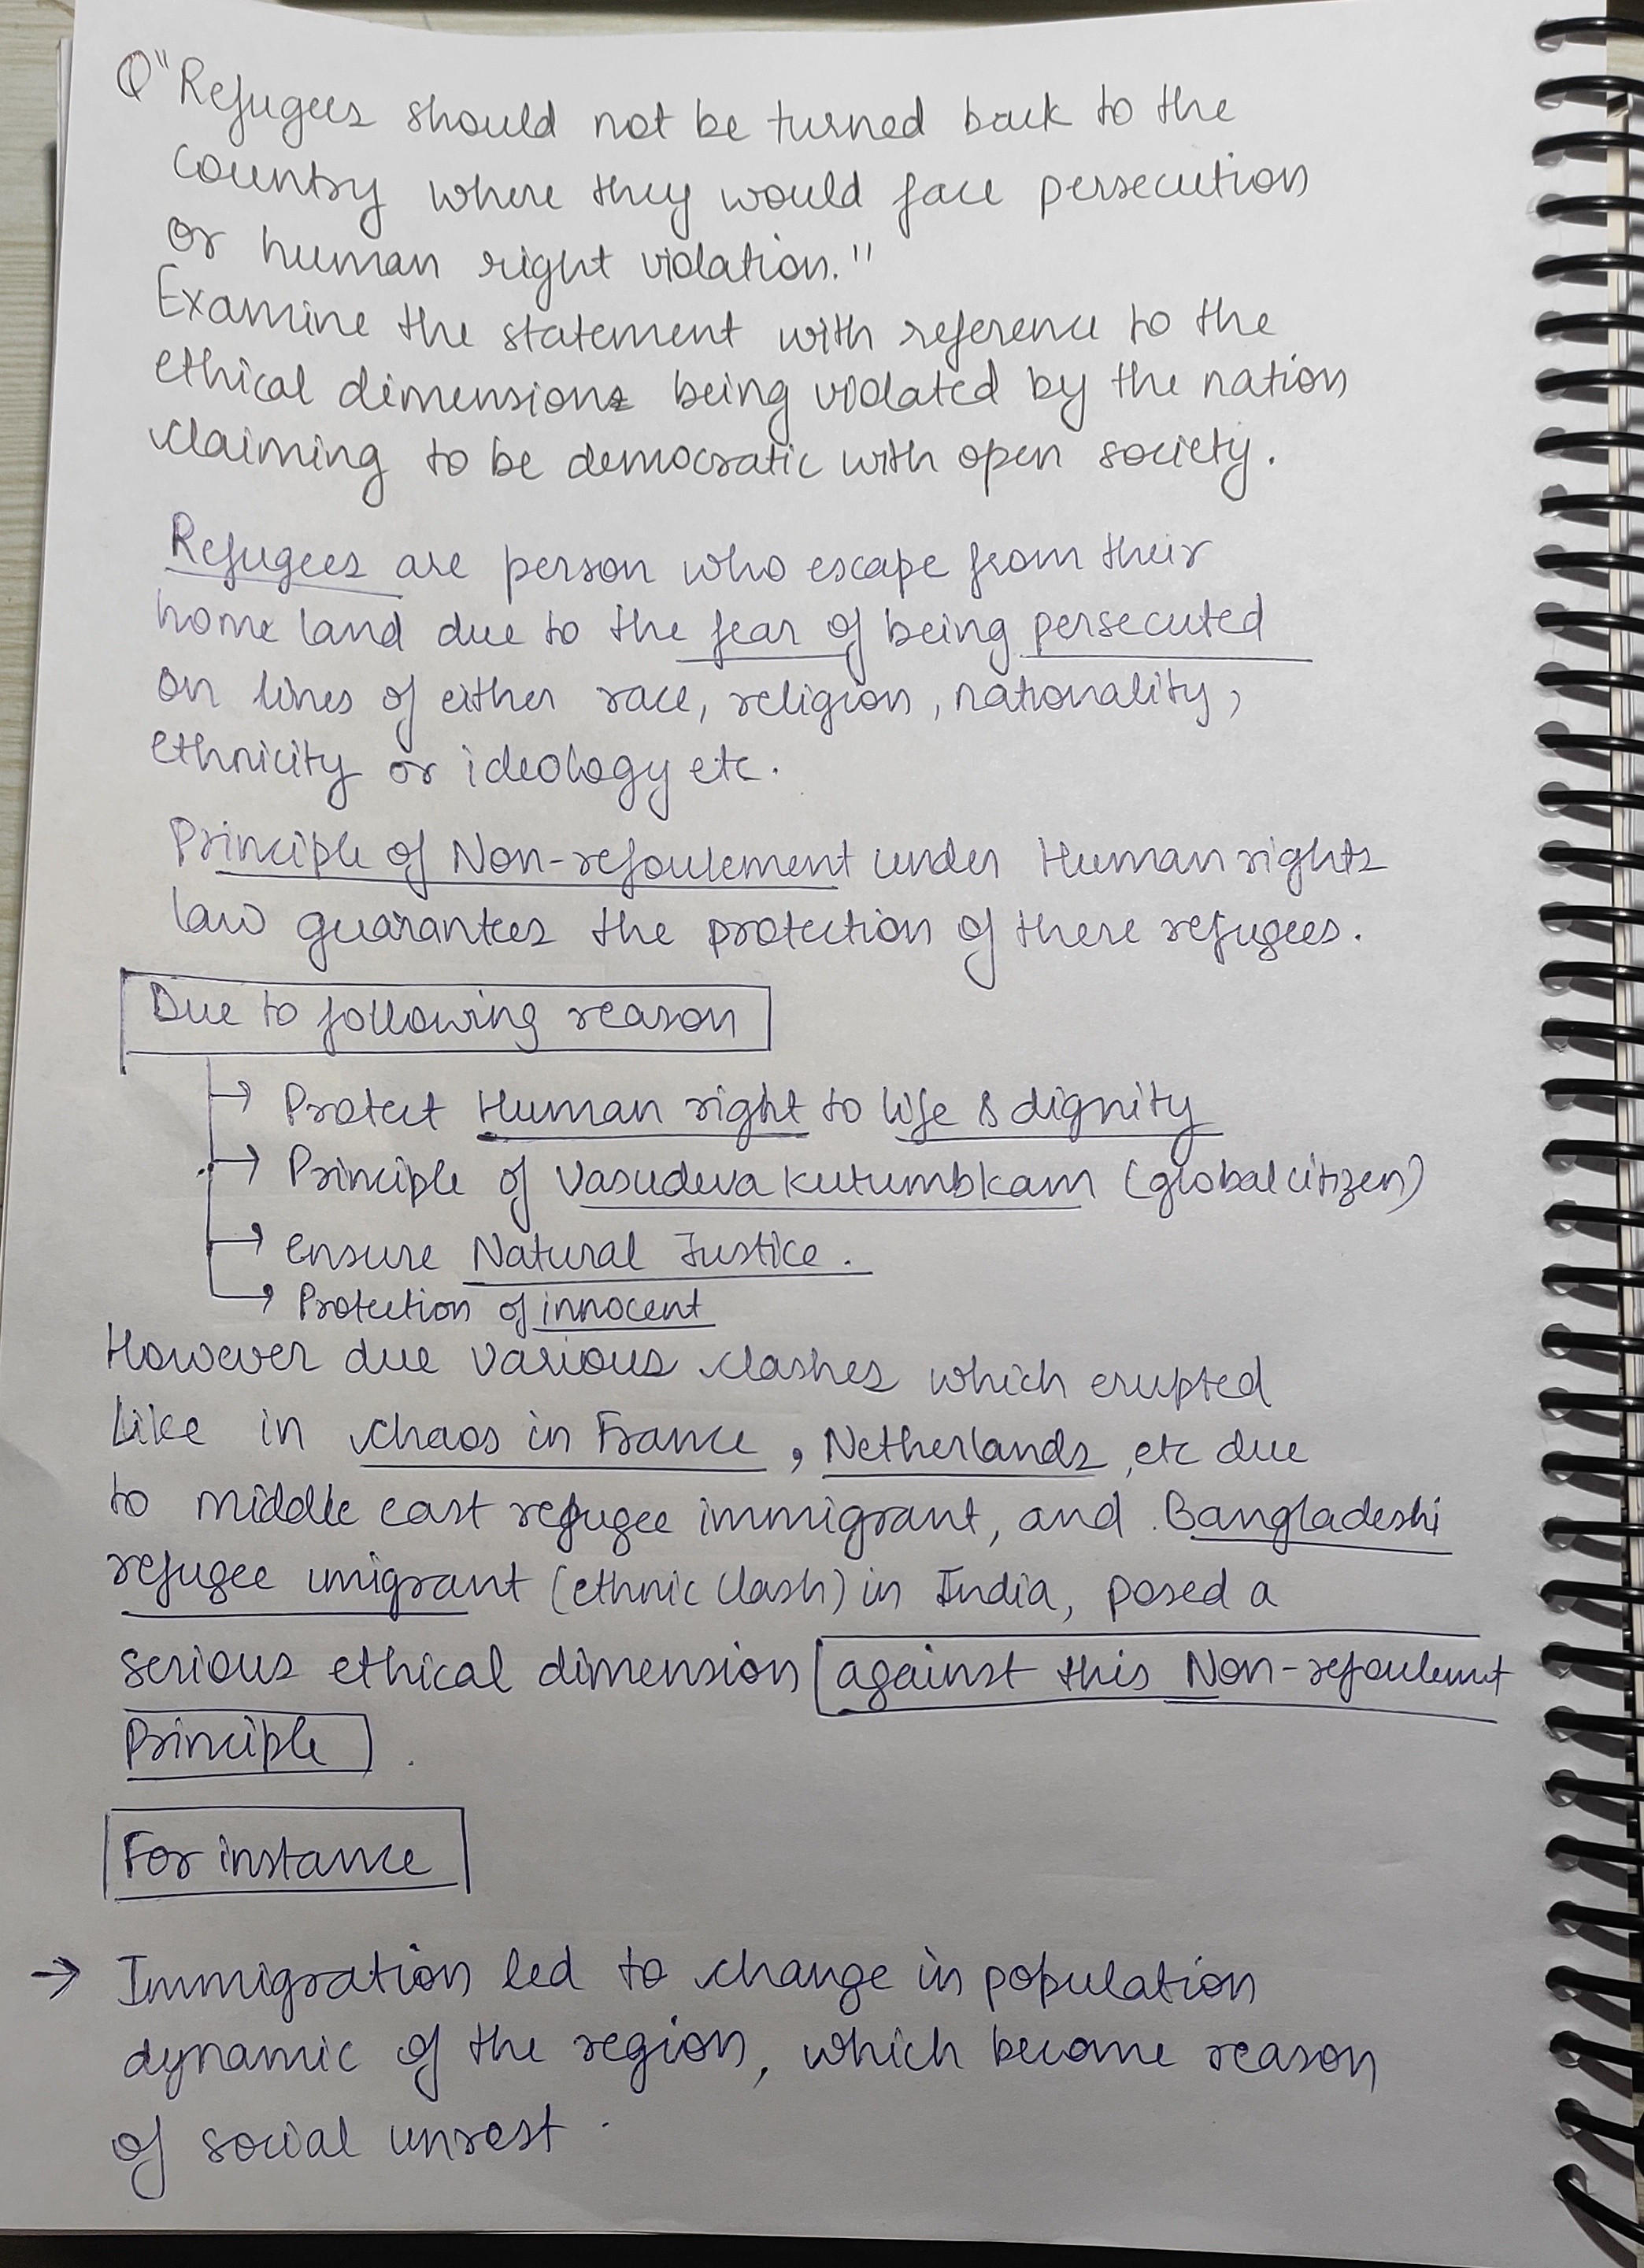 Q "Refugees should not be turned back to the
country where they would face persecution
or human right violation."
Examine the statement with reference to the
ethical dimensions being violated by the nation
claiming to be democratic with open society.
Refugees are person who escape from their
home land due to the fear of being persecuted
on lines of either race, religion, nationality,
ethnicity or ideology etc.
Principle of Non-refoulement under Human rights
law guarantees the protection of there refugees.
Due to following reason
→ Protect Human right to life & dignity
→ Principle of Vasudeva kutumbkam (global citizen)
→ ensure Natural Justice.
→ Protection of innocent
However due various clashes which erupted
like in chaos in France, Netherlands, etc due
to middle east refugee immigrant, and Bangladeshi
refugee imigrant (ethnic clash) in India, posed a
serious ethical dimension against this Non-refoulemnt
Principle.
For instance
→ Immigration led to change in population
dynamic of the region, which become reason
of social unrest.